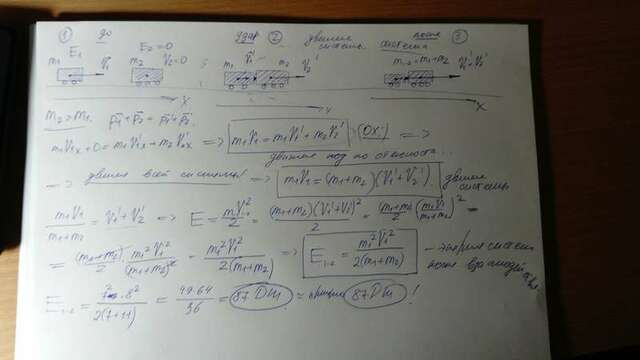 ① до удар ② движение системы после система ③
E₁ E₂=0
m₁ V₁ m₂ V₂=0 m₁ V₁' m₂ V₂' m₁₂=m₁+m₂ V₁'+V₂'
X X X
m₂>m₁. p₁+p₂=p₁'+p₂'
m₁V₁x+0=m₁V₁'x+m₂V₂'x => m₁V₁=m₁V₁'+m₂V₂' (OX) =>
движение под по
=> движен всей системы => m₁V₁=(m₁+m₂)(V₁'+V₂') движен системы
m₁V₁/m₁+m₂ = V₁'+V₂' => E=mV²/2=(m₁+m₂)(V₁'+V₂')²/2=(m₁+m₂)/2(m₁V₁/m₁+m₂)²=
=(m₁+m₂)/2 · m₁²V₁²/(m₁+m₂)² = m₁²V₁²/2(m₁+m₂) => E₁₋₂=m₁²V₁²/2(m₁+m₂) – энергия системы после взаимодействия
E₁₋₂=7²·8²/2(7+11)=49·64/36=87 Дж 87 Дж!